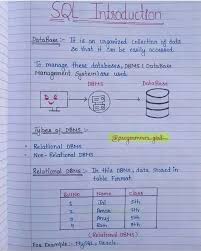 SQL Introduction
DataBase :- It is an organized collection of data
so that it can be easily accessed.
To manage these databases, DBMS (DataBase
Management System) are used.
DBMS DataBase
Types of DBMS :-
@programmer_girl_
• Relational DBMS
• Non-Relational DBMS
Relational DBMS :- In this DBMS, data stored in
table format.
Name Class
1 5th
2 5th
3 5th
4 Ram 8th
(Relational DBMS)
For Example :- MySQL, Oracle.